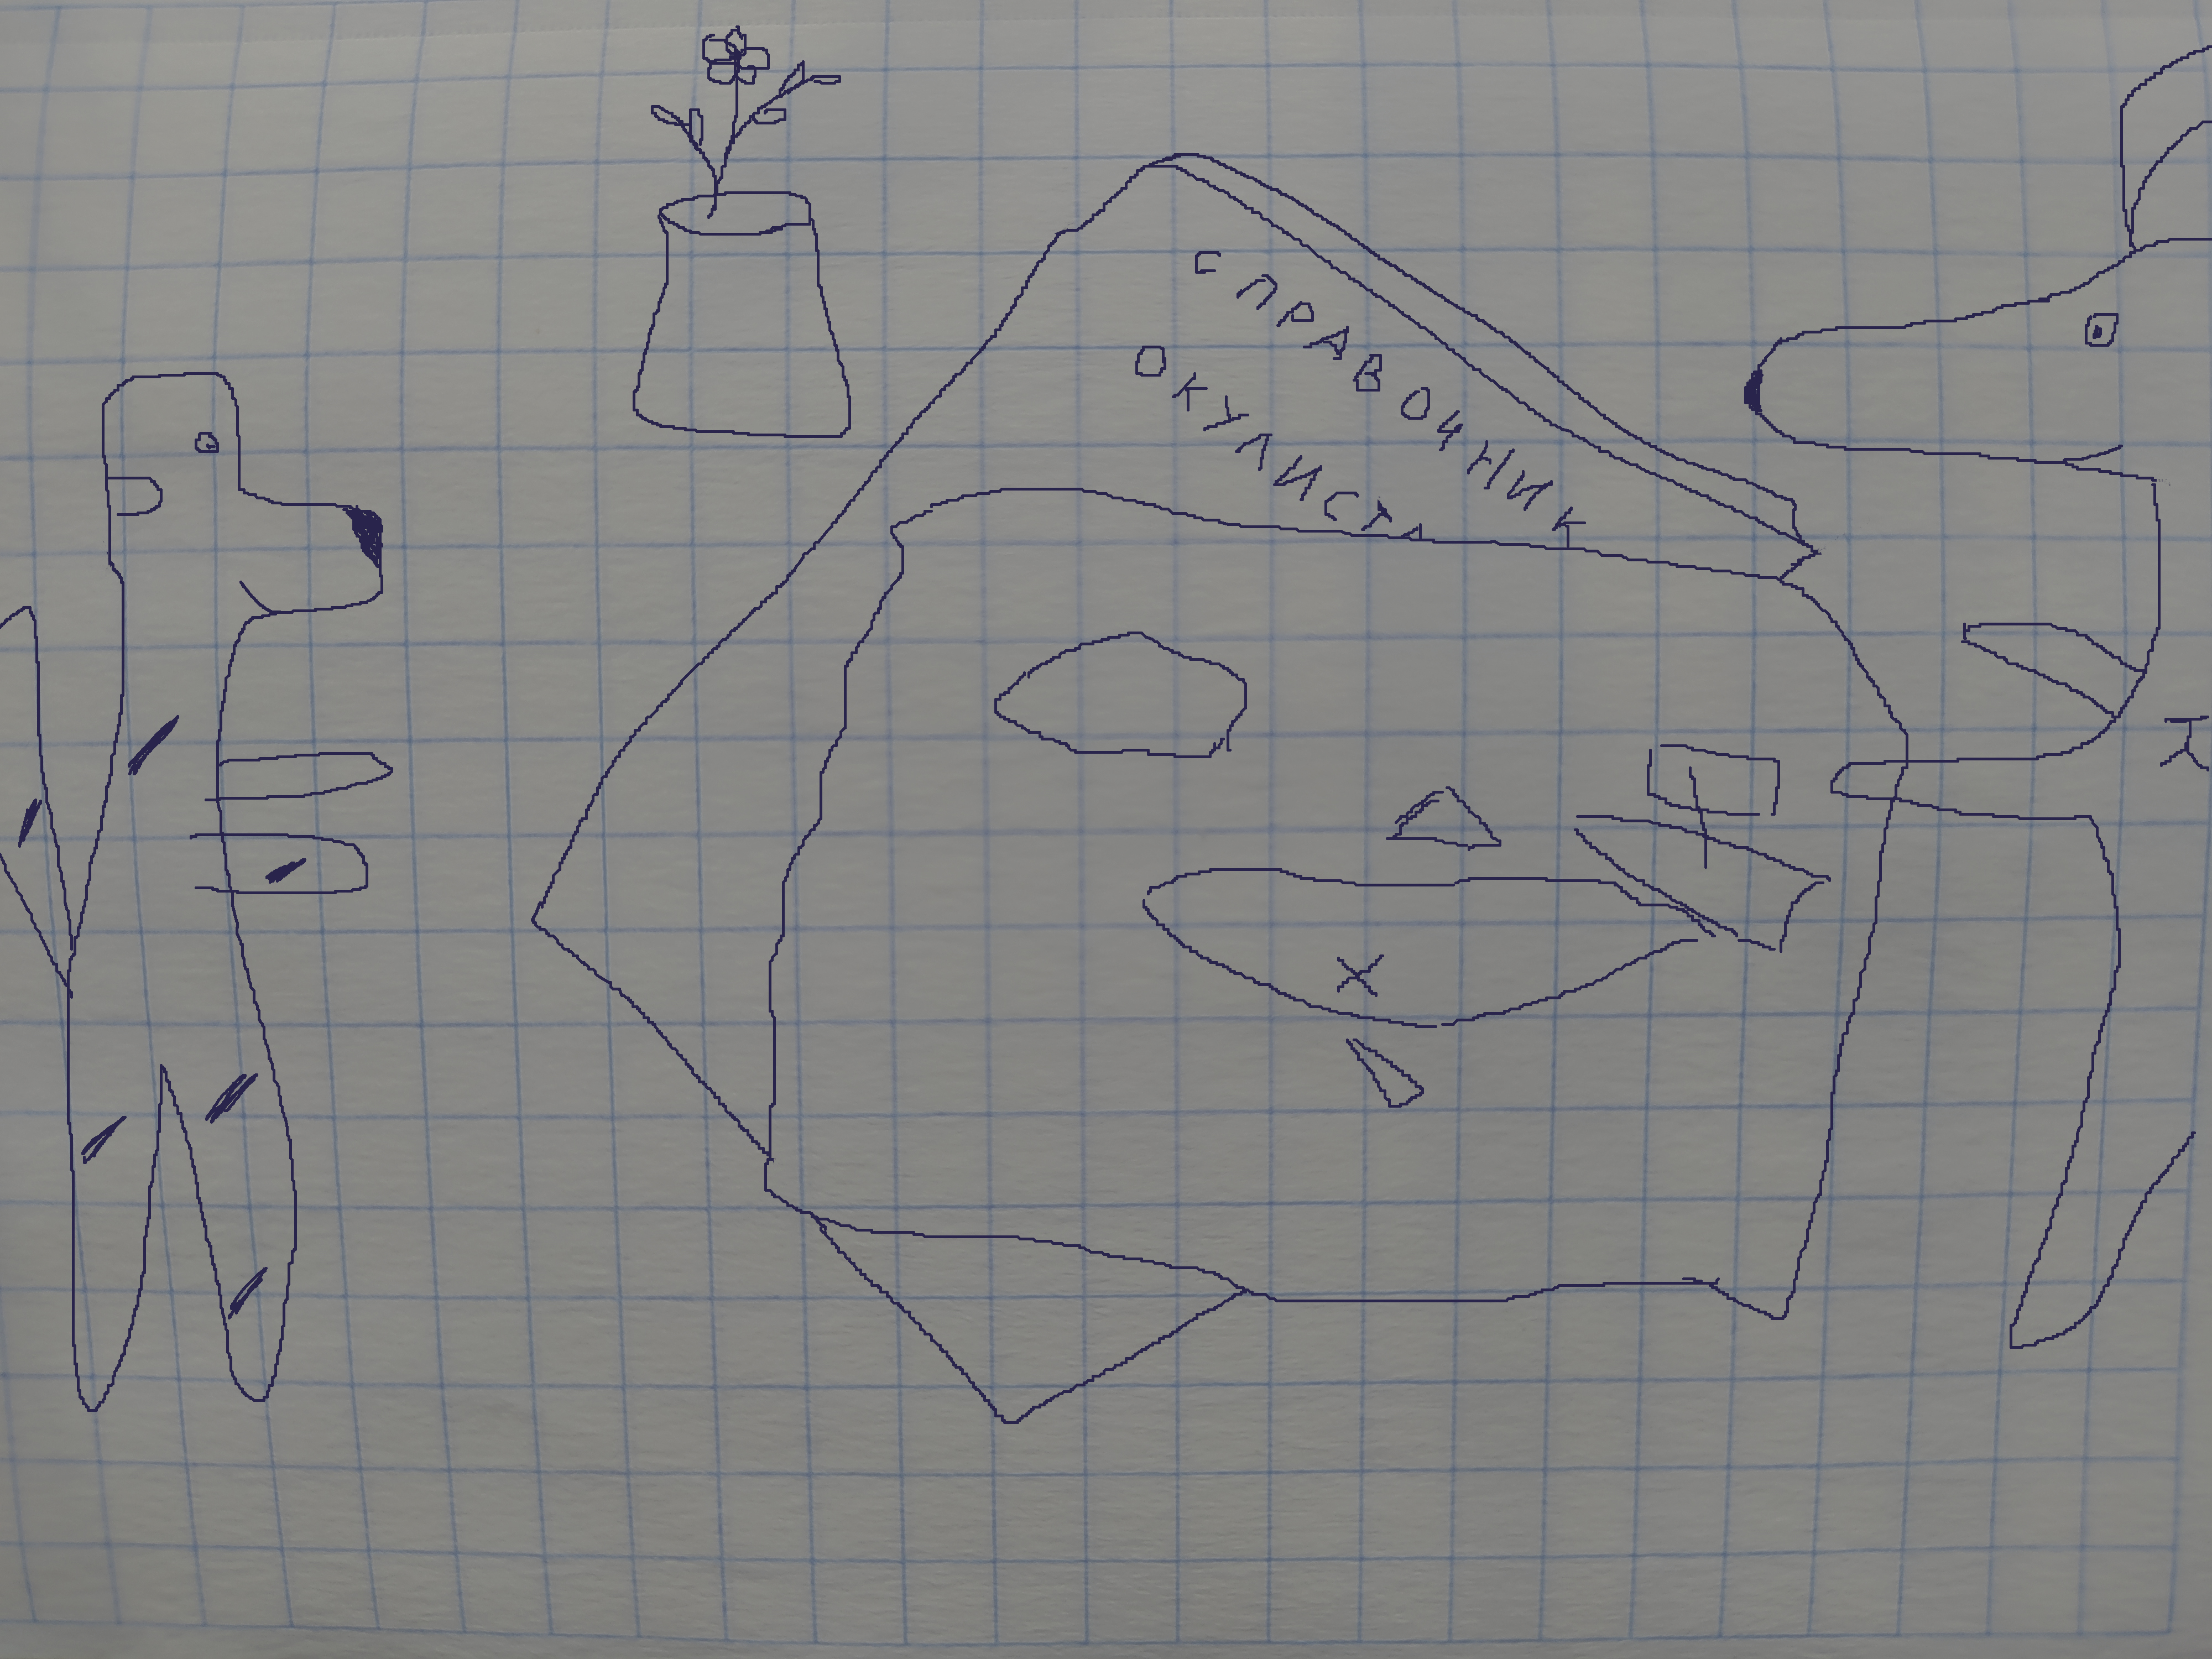 СПРАВОЧНИК
ОКУЛИСТА